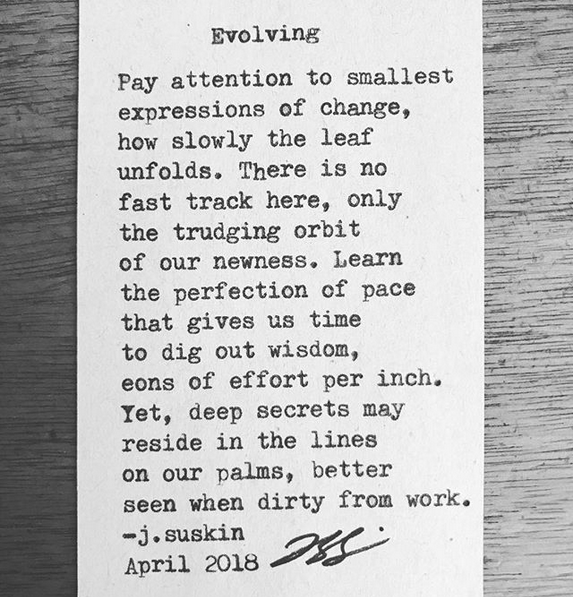 Evolving
Pay attention to smallest
expressions of change,
how slowly the leaf
unfolds. There is no
fast track here, only
the trudging orbit
of our newness. Learn
the perfection of pace
that gives us time
to dig out wisdom,
eons of effort per inch.
Yet, deep secrets may
reside in the lines
on our palms, better
seen when dirty from work.
-j.suskin
April 2018